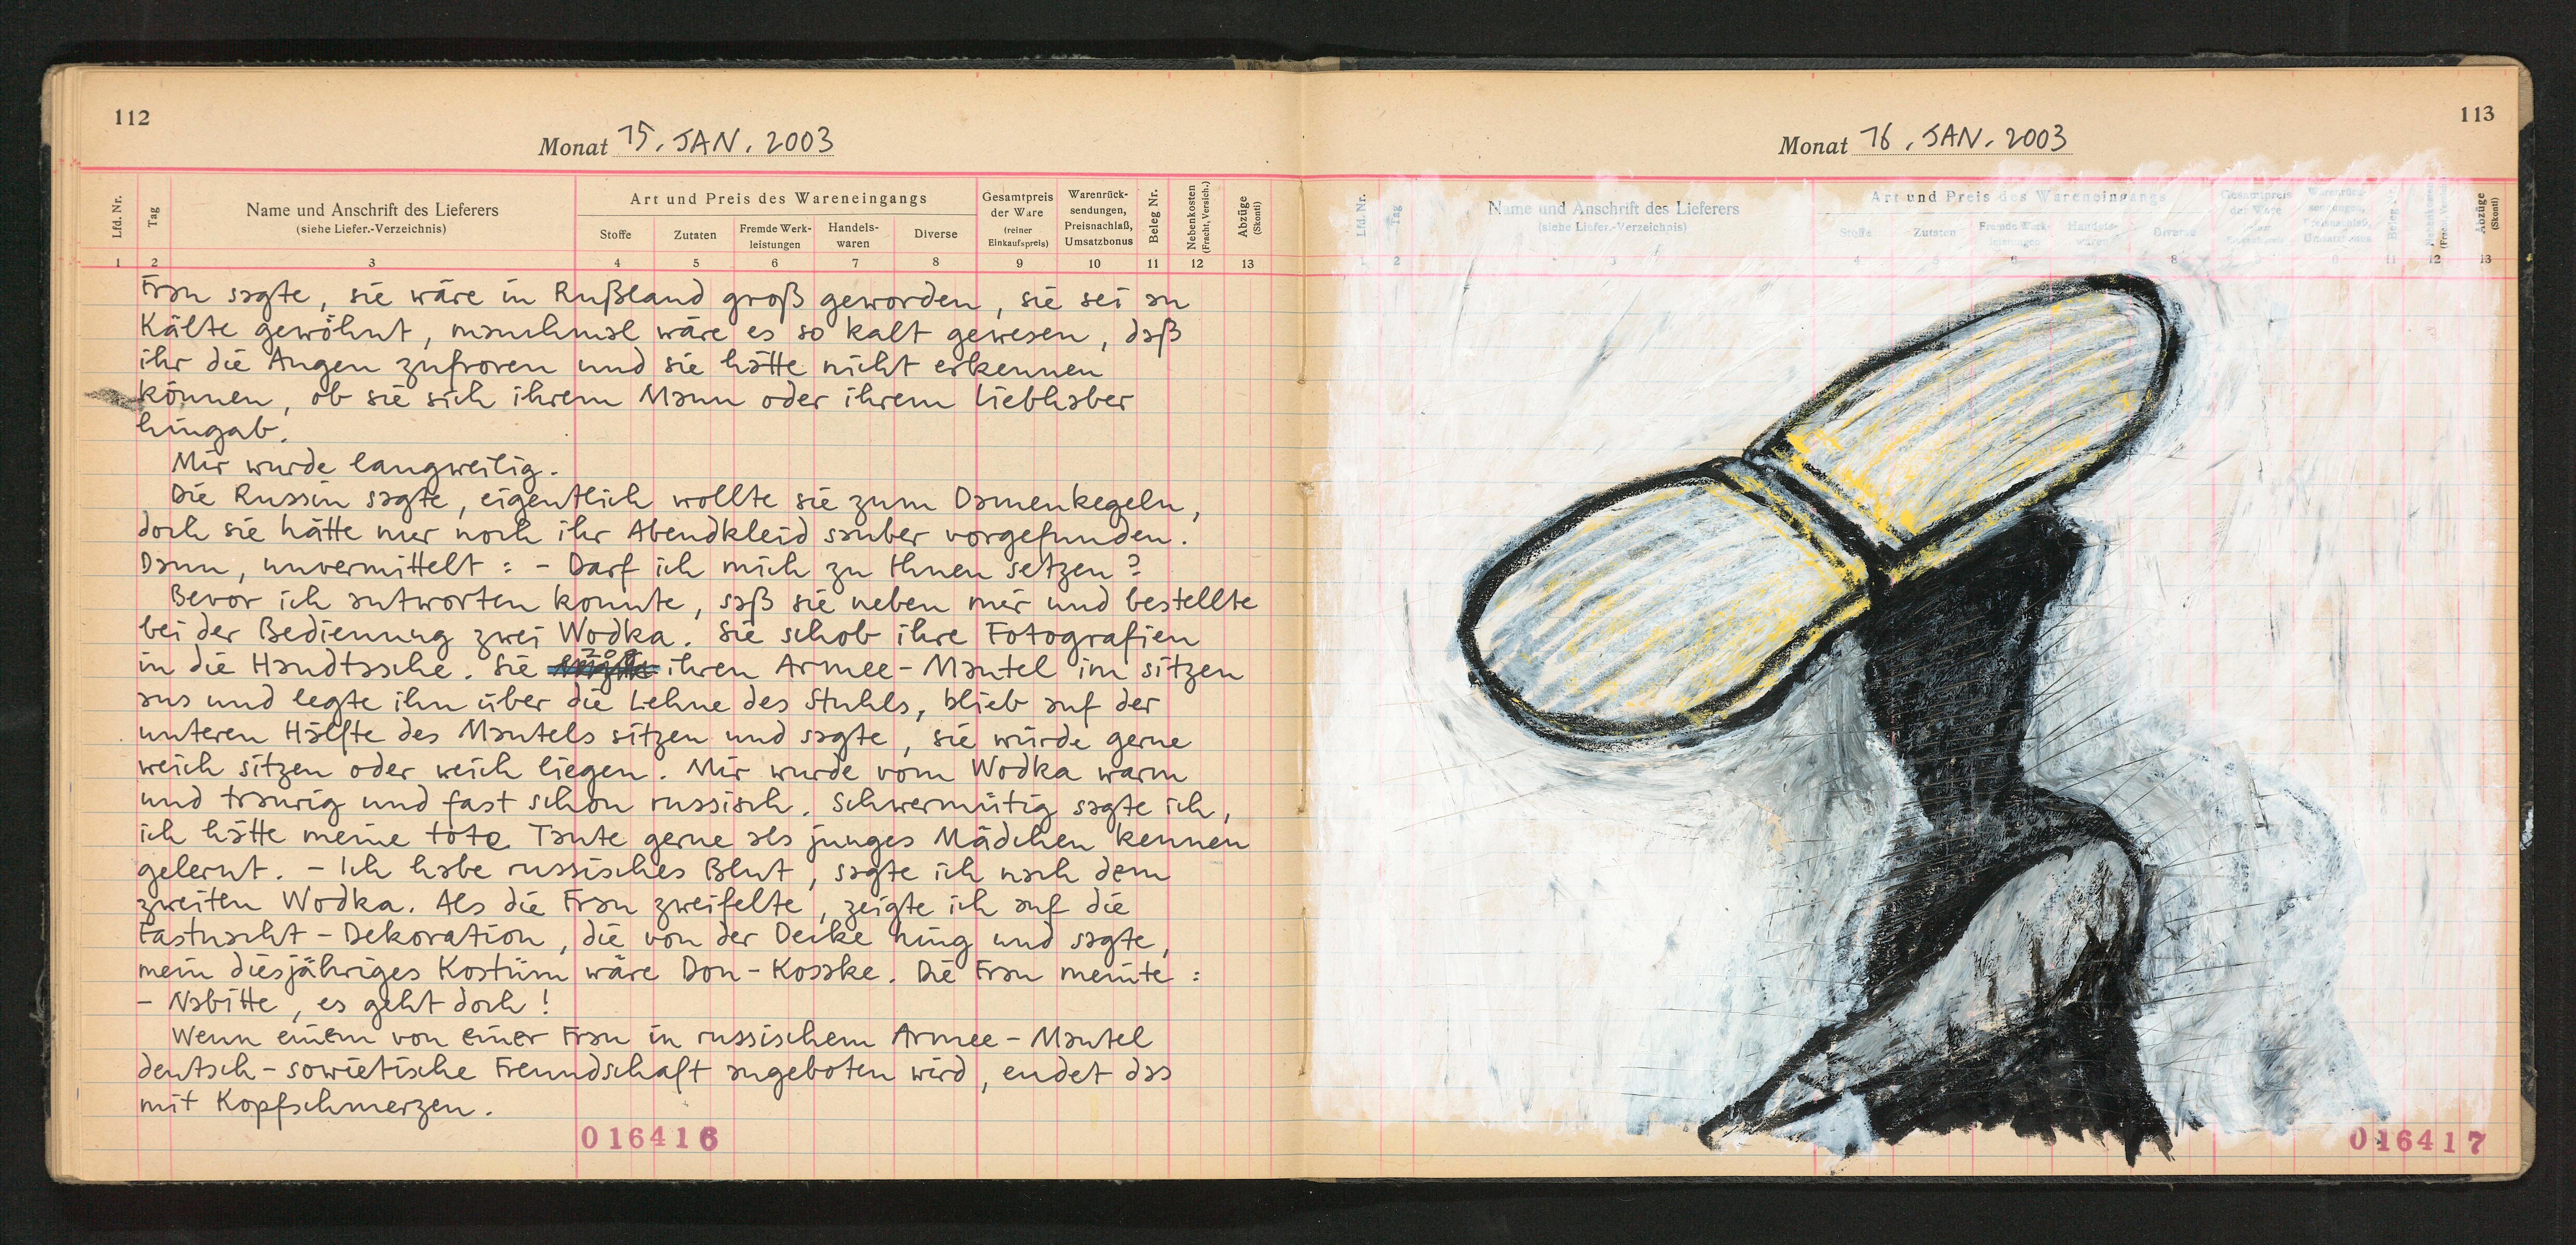 112
Monat 15. JAN. 2003
Lfd. Nr.
Tag
Name und Anschrift des Lieferers
(siehe Liefer.-Verzeichnis)
Art und Preis des Wareneingangs
Stoffe
Zutaten
Fremde Werk-
leistungen
Handels-
waren
Diverse
Gesamtpreis
der Ware
(reiner
Einkaufspreis)
Warenrück-
sendungen,
Preisnachlaß,
Umsatzbonus
Beleg Nr.
Nebenkosten
(Fracht, Versich.)
Abzüge
(Skonti)
1 2 3 4 5 6 7 8 9 10 11 12 13
Frau sagte, sie wäre in Rußland groß geworden, sie sei an
Kälte gewöhnt, manchmal wäre es so kalt gewesen, daß
ihr die Augen zufroren und sie hätte nicht erkennen
können, ob sie sich ihrem Mann oder ihrem Liebhaber
hingab.
Mir wurde langweilig.
Die Russin sagte, eigentlich wollte sie zum Damenkegeln,
doch sie hätte nur noch ihr Abendkleid sauber vorgefunden.
Dann, unvermittelt: - Darf ich mich zu Ihnen setzen?
Bevor ich antworten konnte, saß sie neben mir und bestellte
bei der Bedienung zwei Wodka. Sie schob ihre Fotografien
in die Handtasche. Sie zog ihren Armee-Mantel im sitzen
aus und legte ihn über die Lehne des Stuhls, blieb auf der
unteren Hälfte des Mantels sitzen und sagte, sie würde gerne
weich sitzen oder weich liegen. Mir wurde vom Wodka warm
und traurig und fast schon russisch. Schwermütig sagte ich,
ich hätte meine tote Tante gerne als junges Mädchen kennen
gelernt. - Ich habe russisches Blut, sagte ich nach dem
zweiten Wodka. Als die Frau zweifelte, zeigte ich auf die
Fastnacht-Dekoration, die von der Decke hing und sagte,
mein diesjähriges Kostüm wäre Don-Kosake. Die Frau meinte:
- Nabitte, es geht doch!
Wenn einem von einer Frau in russischem Armee-Mantel
deutsch-sowietische Freundschaft angeboten wird, endet das
mit Kopfschmerzen.
016416
113
Monat 16. JAN. 2003
Lfd. Nr.
Tag
Name und Anschrift des Lieferers
(siehe Liefer.-Verzeichnis)
Art und Preis des Wareneingangs
Stoffe
Zutaten
Fremde Werk-
leistungen
Handels-
waren
Diverse
Gesamtpreis
der Ware
Umsatzbonus
Beleg
Abzüge
(Skonti)
2 3 4 5 6 8 11 12 13
016417